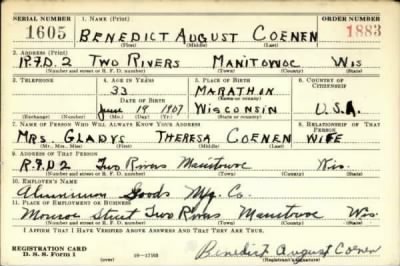 SERIAL NUMBER 1. NAME (Print) ORDER NUMBER
1605 BENEDICT AUGUST COENEN 1883
(First) (Middle) (Last)
2. ADDRESS (Print)
R.F.D. 2 TWO RIVERS MANITOWOC WIS
(Number and street or R. F. D. number) (Town) (County) (State)
3. TELEPHONE 4. AGE IN YEARS 5. PLACE OF BIRTH 6. COUNTRY OF CITIZENSHIP
33 MARATHON
(Town or county)
DATE OF BIRTH
June 19 1907 WISCONSIN U.S.A.
(Exchange) (Number) (Mo.) (Day) (Yr.) (State or country)
7. NAME OF PERSON WHO WILL ALWAYS KNOW YOUR ADDRESS 8. RELATIONSHIP OF THAT PERSON
MRS. GLADYS THERESA COENEN WIFE
(Mr., Mrs., Miss) (First) (Middle) (Last)
9. ADDRESS OF THAT PERSON
R.F.D 2 Two Rivers Manitowoc Wis.
(Number and street or R. F. D. number) (Town) (County) (State)
10. EMPLOYER'S NAME
Aluminum Goods Mfg. Co.
11. PLACE OF EMPLOYMENT OR BUSINESS
Monroe Street Two Rivers Manitowoc Wis.
(Number and street or R. F. D. number) (Town) (County) (State)
I AFFIRM THAT I HAVE VERIFIED ABOVE ANSWERS AND THAT THEY ARE TRUE.
REGISTRATION CARD
D. S. S. Form 1 (over) 16—17105 Benedict August Coenen